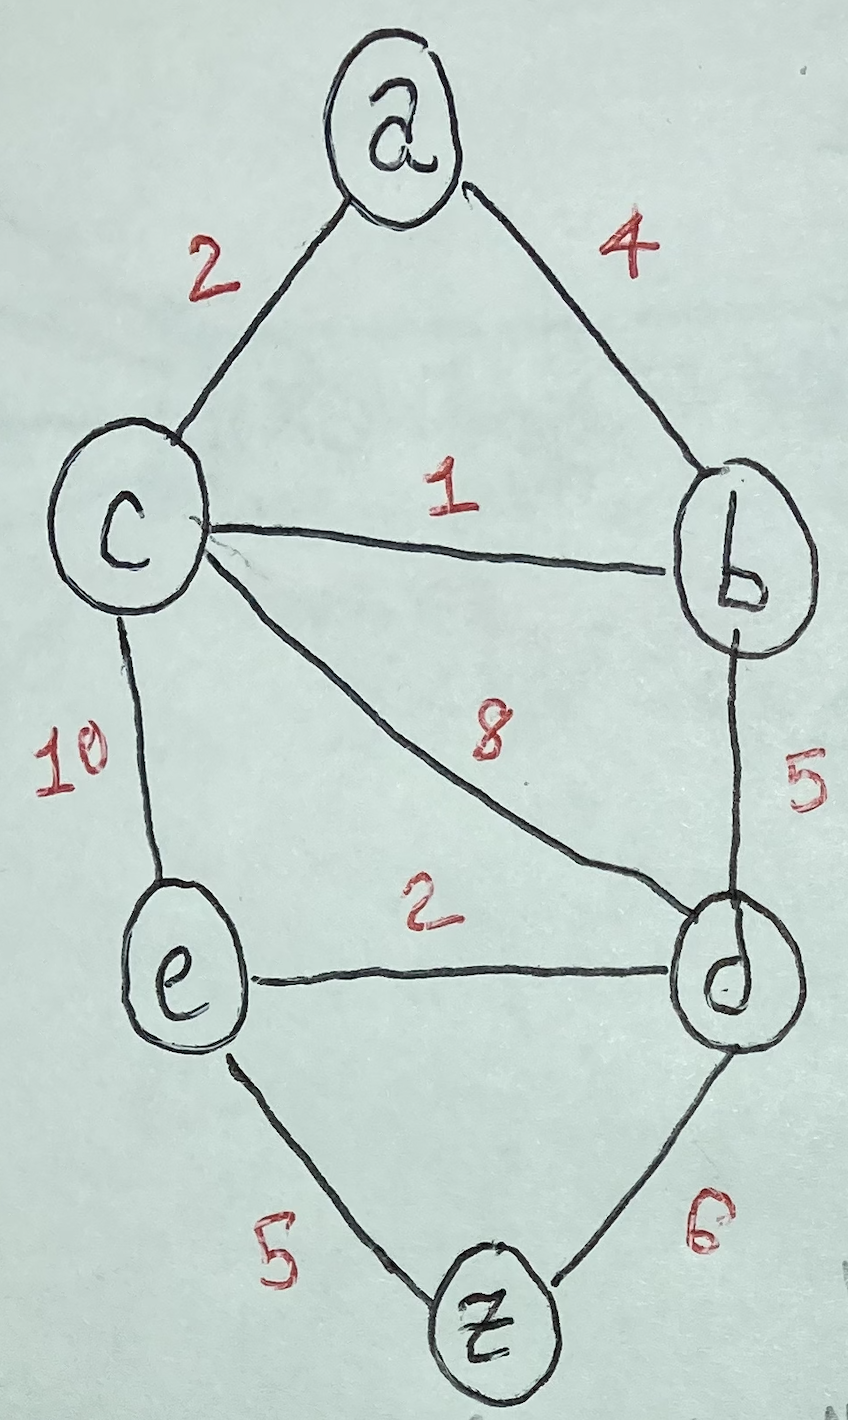 a
2 4
c 1 b
10 8 5
2
e d
5 6
z